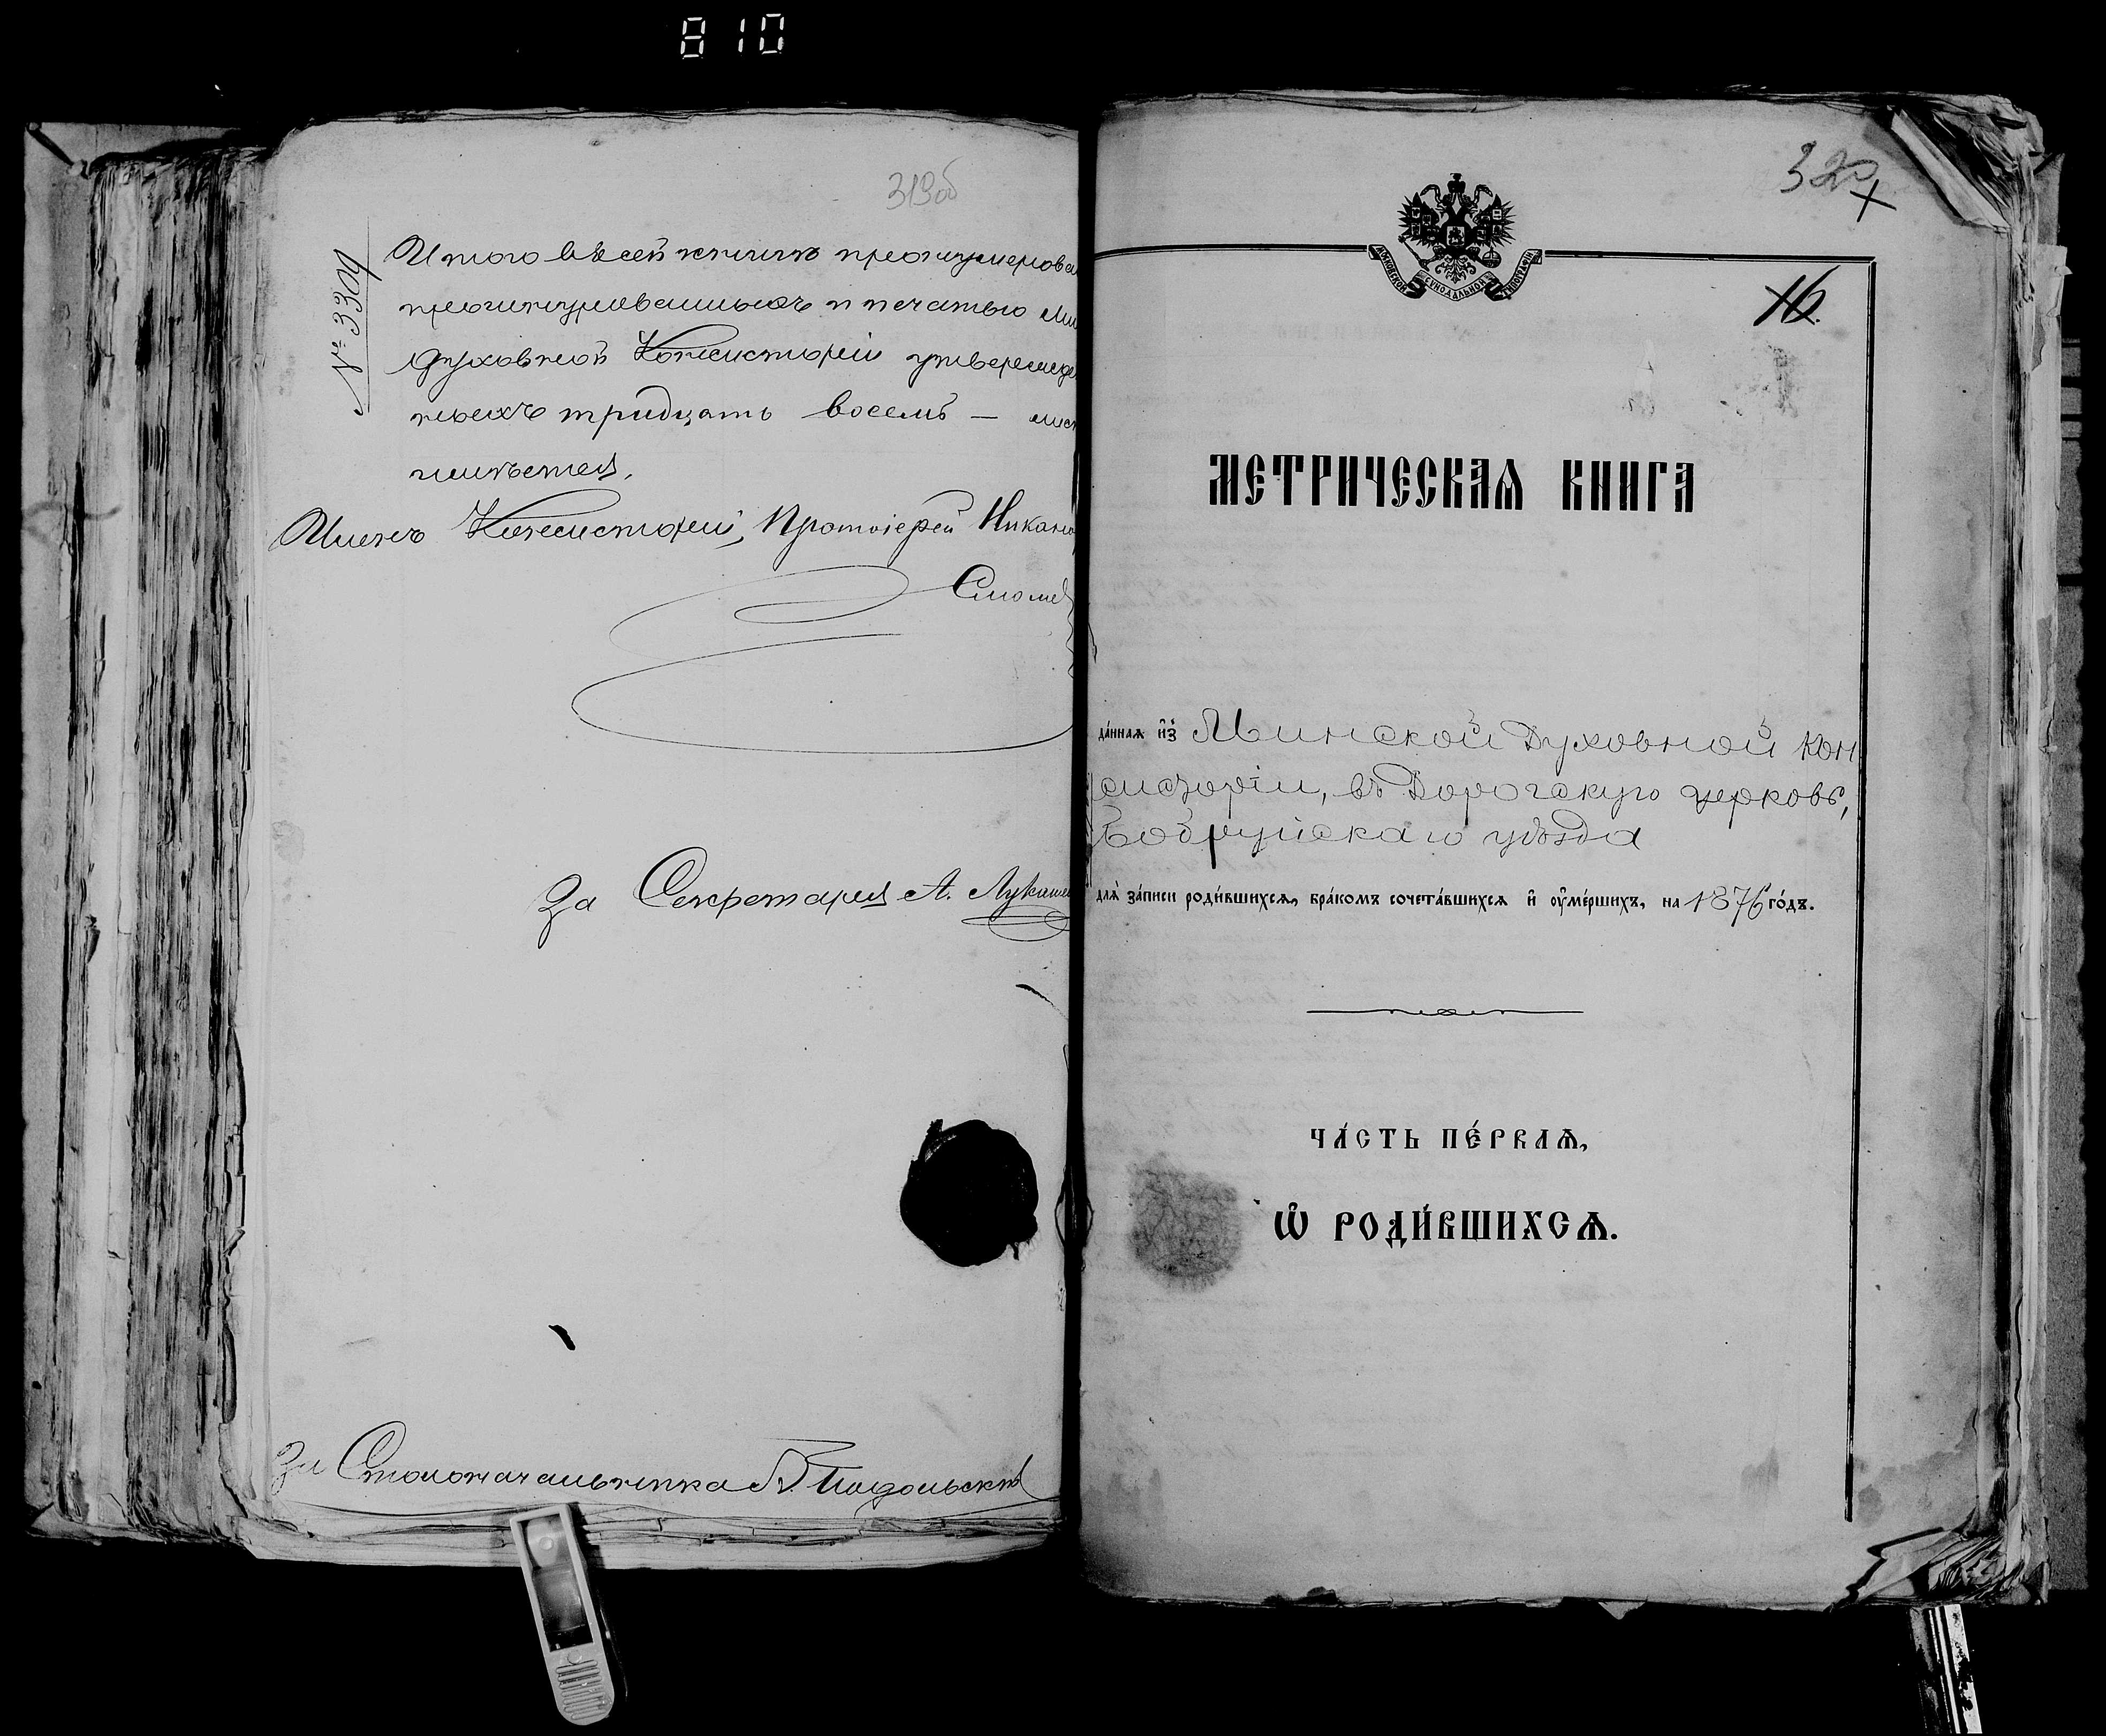 810
319об
№ 3309
Итого въ сей книгѣ пронумерова
прошнурованныхъ и печатью Ми
духовной Консисторіи утвержде
ныхъ тридцать восемь — лис
имѣется.
Членъ Консисторіи, Протоіерей Никано
Смоли
За Секретаря А. Лукаше
За Столоначальника Подольскій
320
16.
МОСКОВСКОЙ СѴНОДАЛЬНОЙ ТИПОГРАФІИ
МЕТРИЧЕСКАѦ КНИГА
да́ннаѧ и҆з̾ Минской Духовной Кон
систоріи, въ Дорогскую церковь,
Бобруйскаго уѣзда
для̀ за́писи роди́вшихсѧ, бра́комъ сочета́вшихсѧ и҆ ᲂу҆ме́ршихъ, на 1876 го́дъ.
ЧА́СТЬ ПЕ́РВАѦ,
Ѽ РОДИ́ВШИХСѦ.